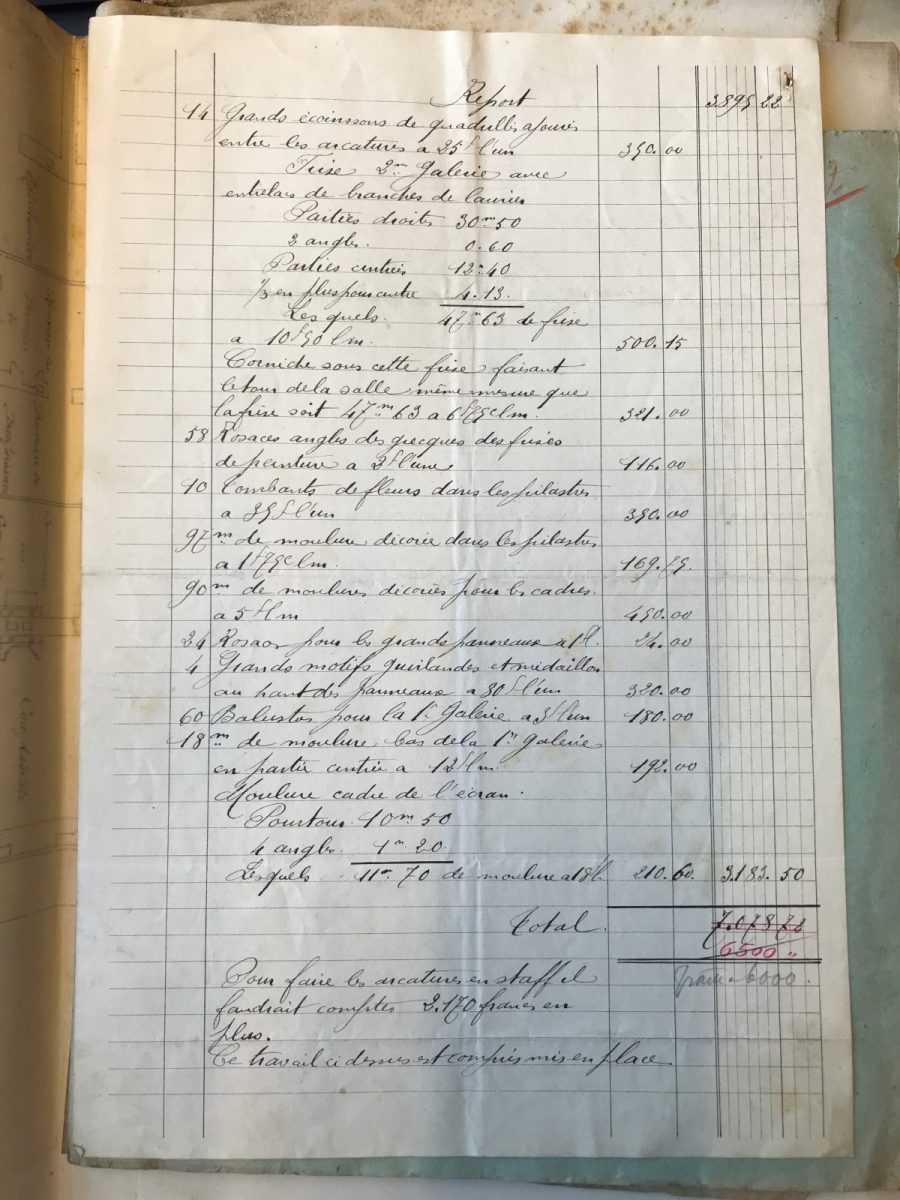 Report 3895 22
14 Grands écoinssons de quadrillés ajourés
entre les arcatures a 25f l'un 350.00
Frise 2m Galerie avec
entrelacs de branches de laurier
Parties droites 30m 50
2 angles. 0.60
Parties cintrées 12.40
1/3 en plus pour cintre 4.13.
Les quels. 47m 63 de frise
a 10f50 l m. 500.15
Corniche sous cette frise faisant
le tour de la salle même mesure que
la frise soit 47m 63 a 6f75c l m. 321.00
58 Rosaces angles des grecques des frises
de peinture a 2f l'une 116.00
10 Tombants de fleurs dans les pilastres
a 35f l'un 350.00
97m de moulure décorée dans les pilastres
a 1f75c l m. 169.75.
90m de moulures décorées pour les cadres.
a 5f l m 450.00
24 Rosaces pour les grands panneaux a 1f. 24.00
4 Grands motifs guirlandes et médaillon
au haut des panneaux a 80f l'un 320.00
60 Balustres pour la 1e Galerie a 3f l'un 180.00
16m de moulure bas de la 1re galerie
en partie cintrée a 12f l m. 192.00
Moulure cadre de l'écran.
Pourtour. 10m 50
4 angles. 1m 20.
Lesquels 11m 70 de moulure a 18f. 210.60. 3.183.50
Total. 7.078 72
6500 "
6000.
Pour faire les arcatures en staff il
faudrait compter 2.170 francs en
plus.
Ce travail ci dessus est compris mis en place